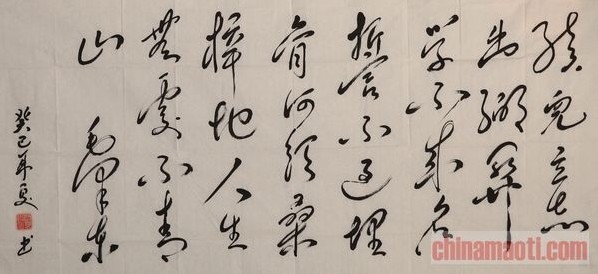 孩兒立志
出鄉關
学不成名
誓不还埋
骨何须桑
梓地人生
無處不青
山 毛泽东
癸巳年夏 书
chinamaoti.com